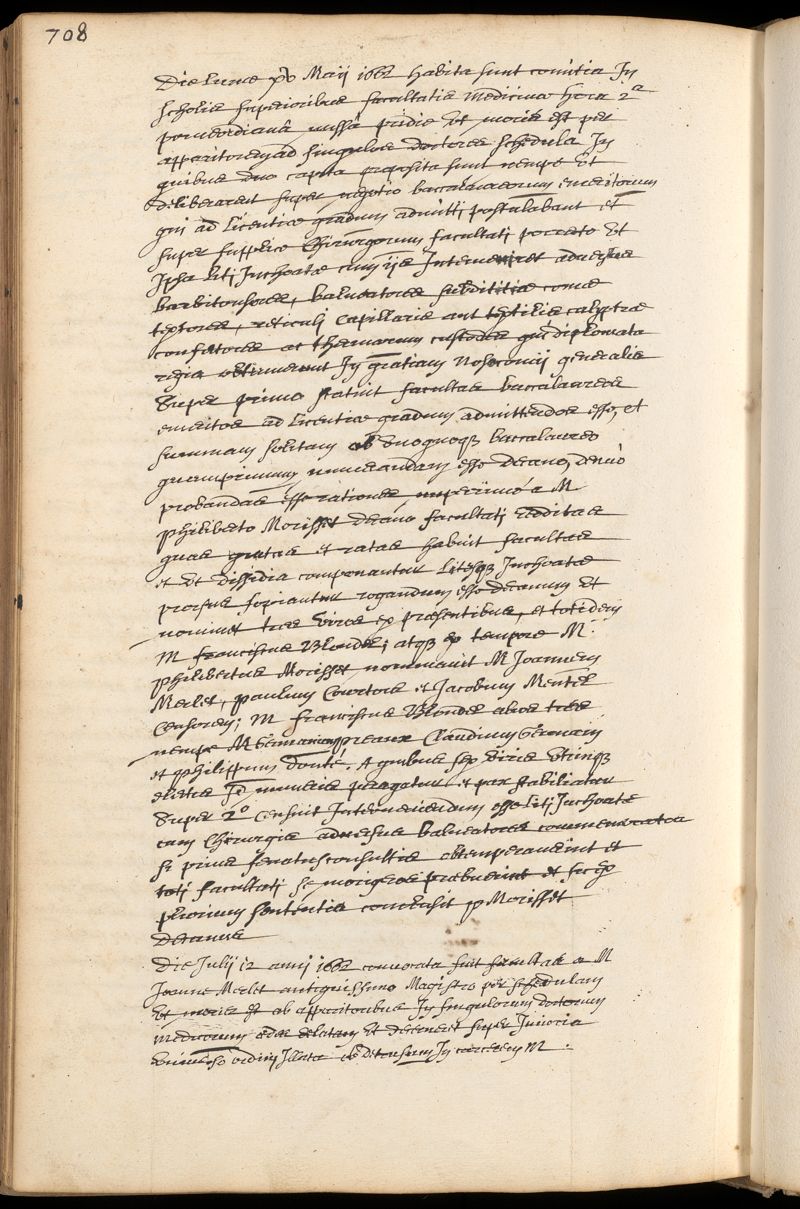 708
Die lunæ p.o Maij 1662 habita sunt comitia In
scholis superioribus facultatis medicinæ hora 2a
pomeridianâ missâ pridie ut moris est per
apparitorem ad singulos doctores schedula In
quibus duo capita proposita sunt nempe ut
deliberarent super negotio baccalaureorum emeritorum
qui ad licentiæ gradum admitti postulabant et
super supplice Chirurgorum facultati porrecto ut
Ipsa liti Inchoatæ cum iis Interveniret adversus
barbitonsores, balneatores subdititiæ comæ
textores, reticuli capillaris aut textilis calyptræ
confectores ac thermarum custodes qui diplomata
regia obtinuerunt In gratiam Nosocomij generalis
Super primo statuit facultas baccalaureos
emeritos ad licentiæ gradum admittendos esse, et
summam solitam ab unoquoq baccalaureo
quamprimum numerandam esse decano, denuo
probandas esse rationes nuperrimè a M
philiberto Morisset decano facultati redditas
quas gratas et ratas habuit facultas
et ut dissidia componantur litesq Inchoatæ
prorsus sopiantur rogandum esse decanum ut
nominet tres viros ex præsentibus, et totidem
M franciscus Blondel; atq ex tempore M.
philibertus Morisset nominavit M Joannem
Merlet, paulum Courtois et Jacobum Mentel
Censorem; M franciscus Blondel alios tres
nempe M Germanum preaux Claudium Germain
et philippum douté. A quibus sex viris utrinq
electis munus peragatur et pax stabiliatur
Super 2o censuit Interveniendum esse liti Inchoatæ
cum Chirurgis adversus balneatores commemoratos
si prius senatusconsultis obtemperaverint et
toti facultati se morigeros præbuerint et sic ex
plurium sententia conclusit p Morisset
decanus
Die Julij 12 anni 1662 convocata fuit facultas a M
Joanne Merlet antiquissimo Magistro per schedulam
ut moris est ab apparitoribus In singulorum doctorum
medicorum ædes delatam ut decerneret super Injuria
universo ordini Illata ob detrusum In carcerem M.